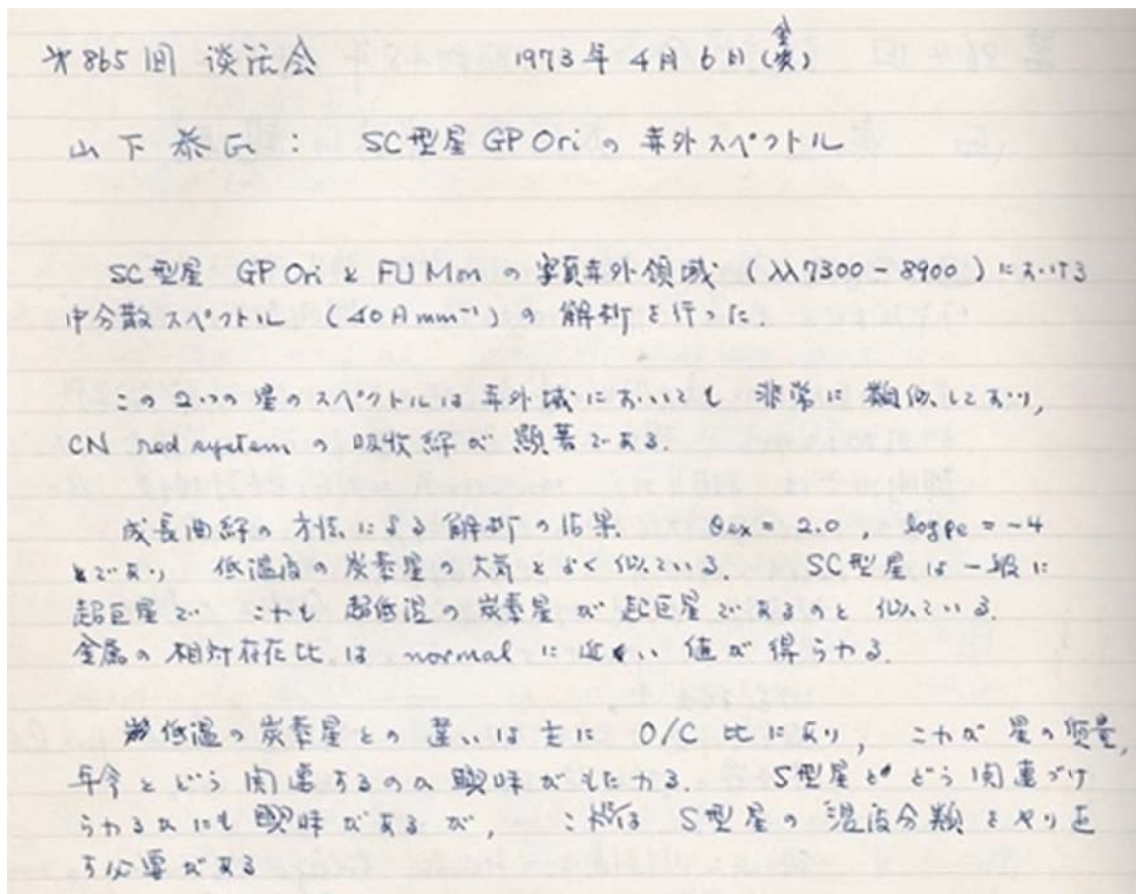 才865回 談话会 1973年4月6日(金)
山下泰氏: SC型星 GP Ori の赤外スペクトル
SC型星 GP Ori と FU Mon の写真赤外領域 (λλ7300-8900) における
中分散スペクトル (40Åmm⁻¹) の解析を行った.
この2つの星のスペクトルは赤外域においても 非常に類似しており,
CN red system の吸収線が顕著である.
成長曲線の方法による解析の結果 θex = 2.0, log pe = -4
であり 低温度の炭素星の大気とよく似ている. SC型星は一般に
超巨星で これも 超低温の炭素星が超巨星であるのと似ている.
金属の相対存在比は normal に近い値が得られる.
低温の炭素星との違いは主に O/C 比にあり, これが星の質量,
年令とどう関連するのか興味がもたれる. S型星とどう関連づけ
られるかにも興味があるが, これは S型星の温度分類をやり直
す必要がある